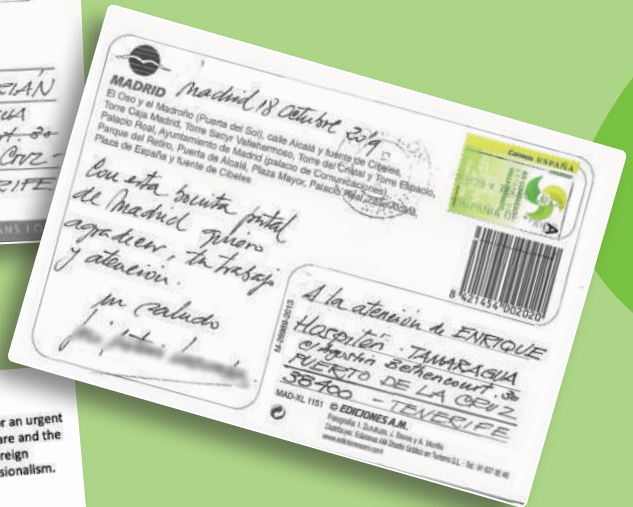 CIÁN
Cruz -
RIFE
MADRID
Madrid 18 Octubre 2019
El Oso y el Madroño (Puerta del Sol), calle Alcalá y fuente de Cibeles,
Torre Caja Madrid, Torre Sacyr Vallehermoso, Torre del Cristal y Torre Espacio,
Palacio Real, Ayuntamiento de Madrid (palacio de Comunicaciones),
Parque del Retiro, Puerta de Alcalá, Plaza Mayor, Palacio Real,
Plaza de España y fuente de Cibeles
Correos ESPAÑA
A
Con esta bonita postal
de Madrid quiero
agradicer, tu trabajo
y atención.
un saludo
8 421454 002020
A la atención de ENRIQUE
Hospiten. TAMARAGUA
c/ Agustín Bethencourt. 30
PUERTO DE LA CRUZ
38400 - TENERIFE
M-26969-2013
MAD-XL 1151 © EDICIONES A.M.
r an urgent
are and the
reign
sionalism.